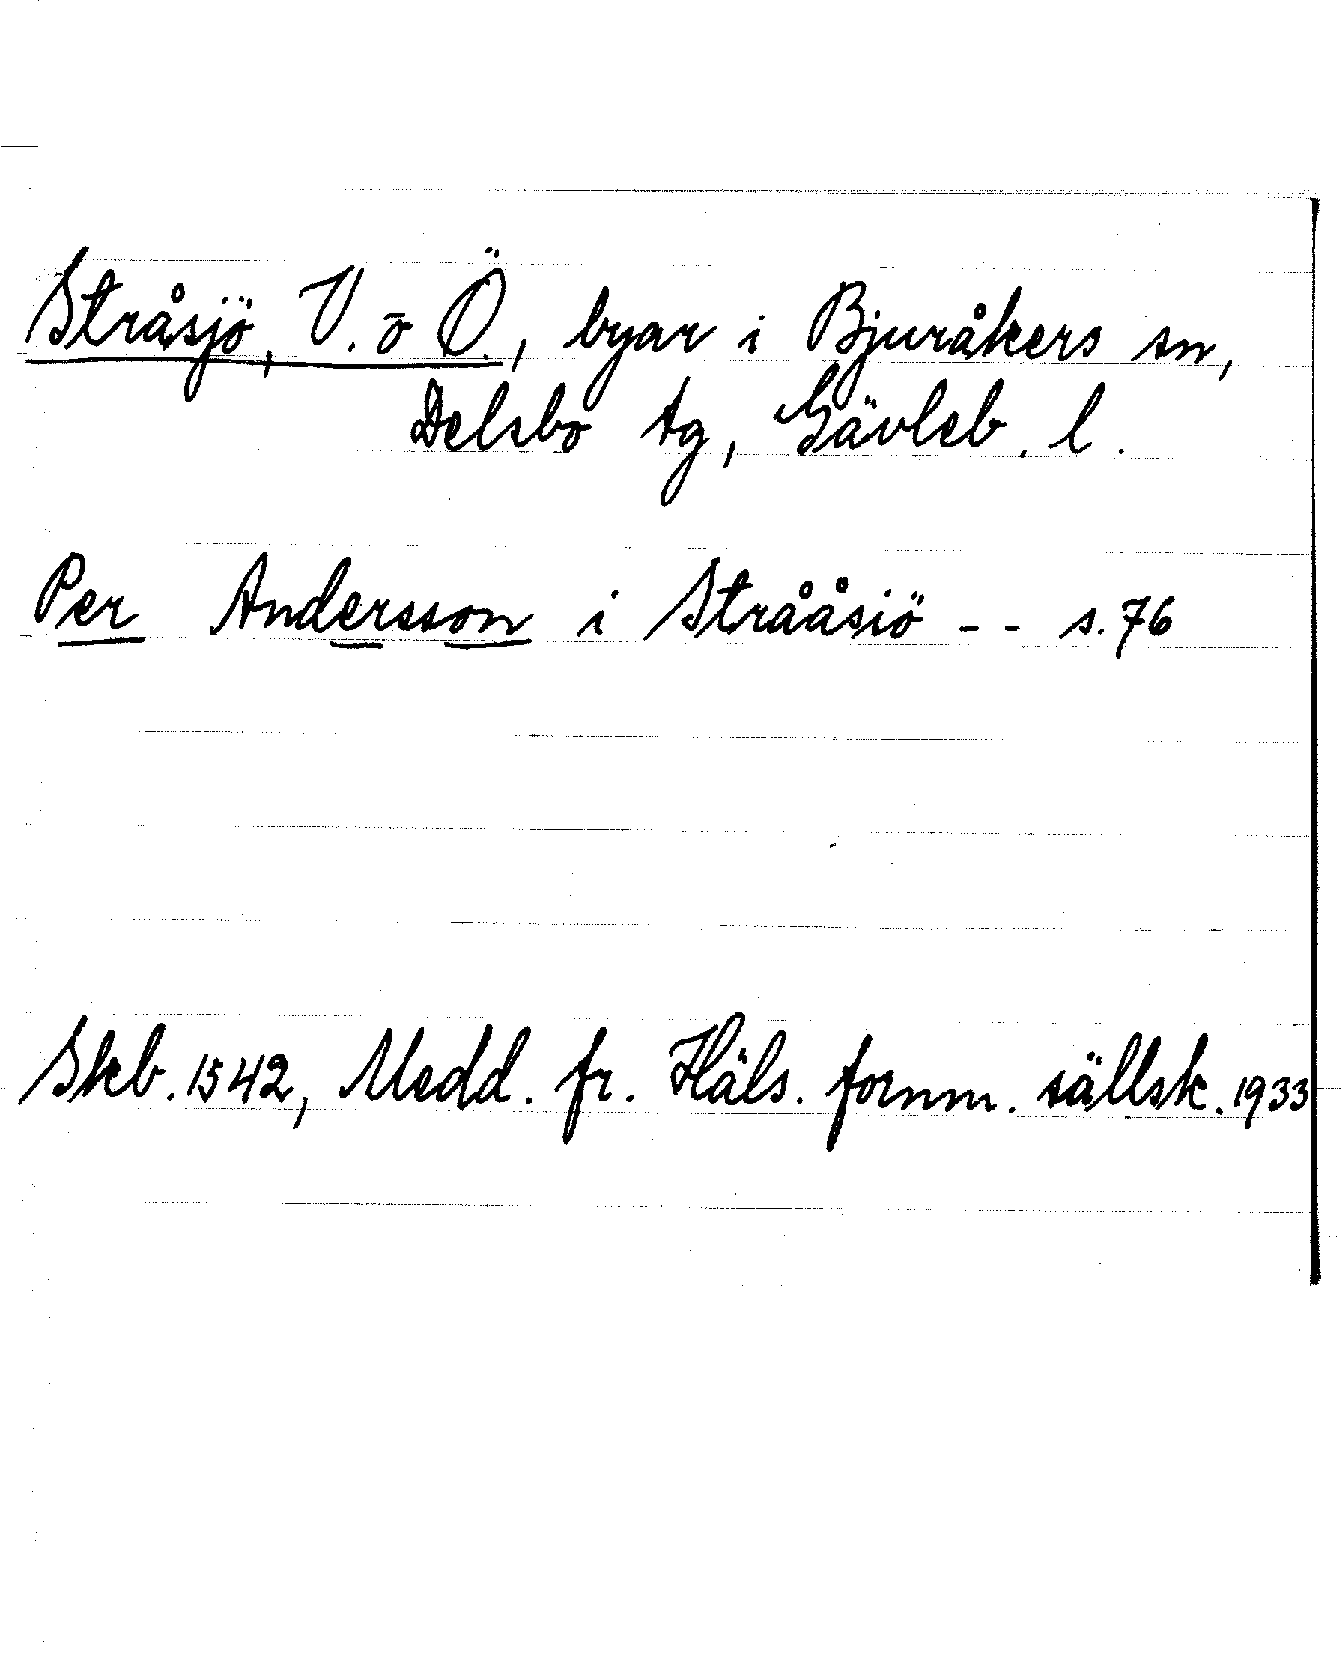 Stråsjö, V. o Ö., byar i Bjuråkers sn,
Delsbo tg, Gävleb. l.
Per Andersson i Strååsiö -- s. 76
Skb. 1542, Medd. fr. Häls. fornm. sällsk. 1933